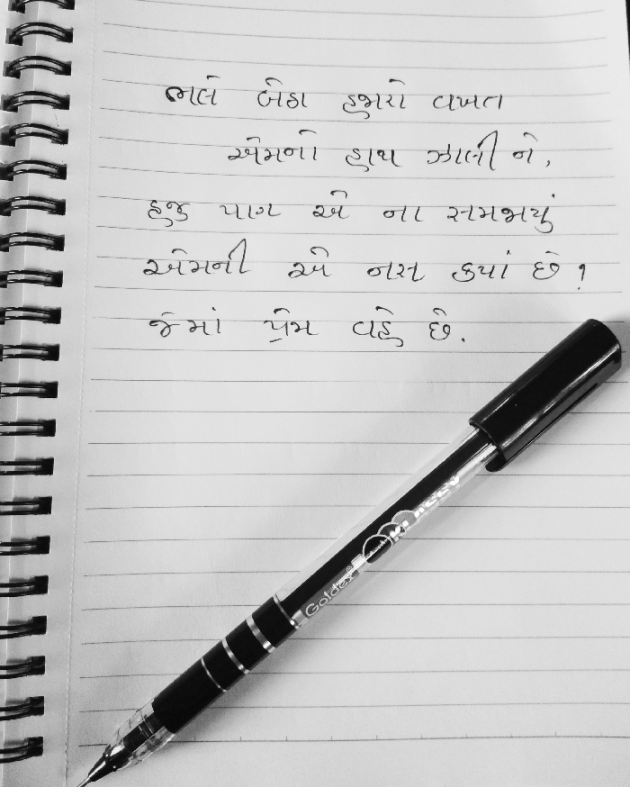 ભલે બેઠા હજારો વખત
એમનો હાથ ઝાલી ને,
હજુ પાણ એ ના સમજાયું
એમની એ નસ કયાં છે?
જેમાં પ્રેમ વહે છે.
Goldex Klassy